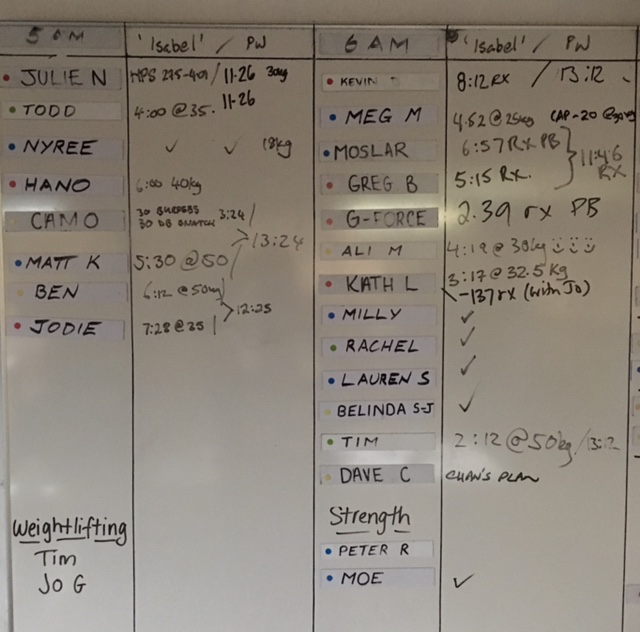 5 AM 'Isabel' / PW
JULIE N HPS 275-401 / 11-26 30kg
TODD 4:00 @ 35. 11-26
NYREE ✓ ✓ 18kg
HANO 6:00 40kg
CAMO 30 BURPEES 3:24 /
30 DB SNATCH
13:24
MATT K 5:30 @ 50 /
BEN 6:12 @ 50kg /
12:25
JODIE 7:28 @ 35 |
Weightlifting
Tim
Jo G
6 AM 'Isabel' / PW
KEVIN 8:12 RX / 13:12
MEG M 4:52 @ 25kg CAP-20
MOSLAR 6:57 RX PB
GREG B 5:15 RX.
11:46
RX
G-FORCE 2.39 rx PB
ALI M 4:19 @ 30kg
KATH L 3:17 @ 32.5 kg
-137 rx (with Jo)
MILLY ✓
RACHEL ✓
LAUREN S ✓
BELINDA S-J ✓
TIM 2:12 @ 50kg / 13:12
DAVE C CHAN'S PLAN
Strength
PETER R
MOE ✓